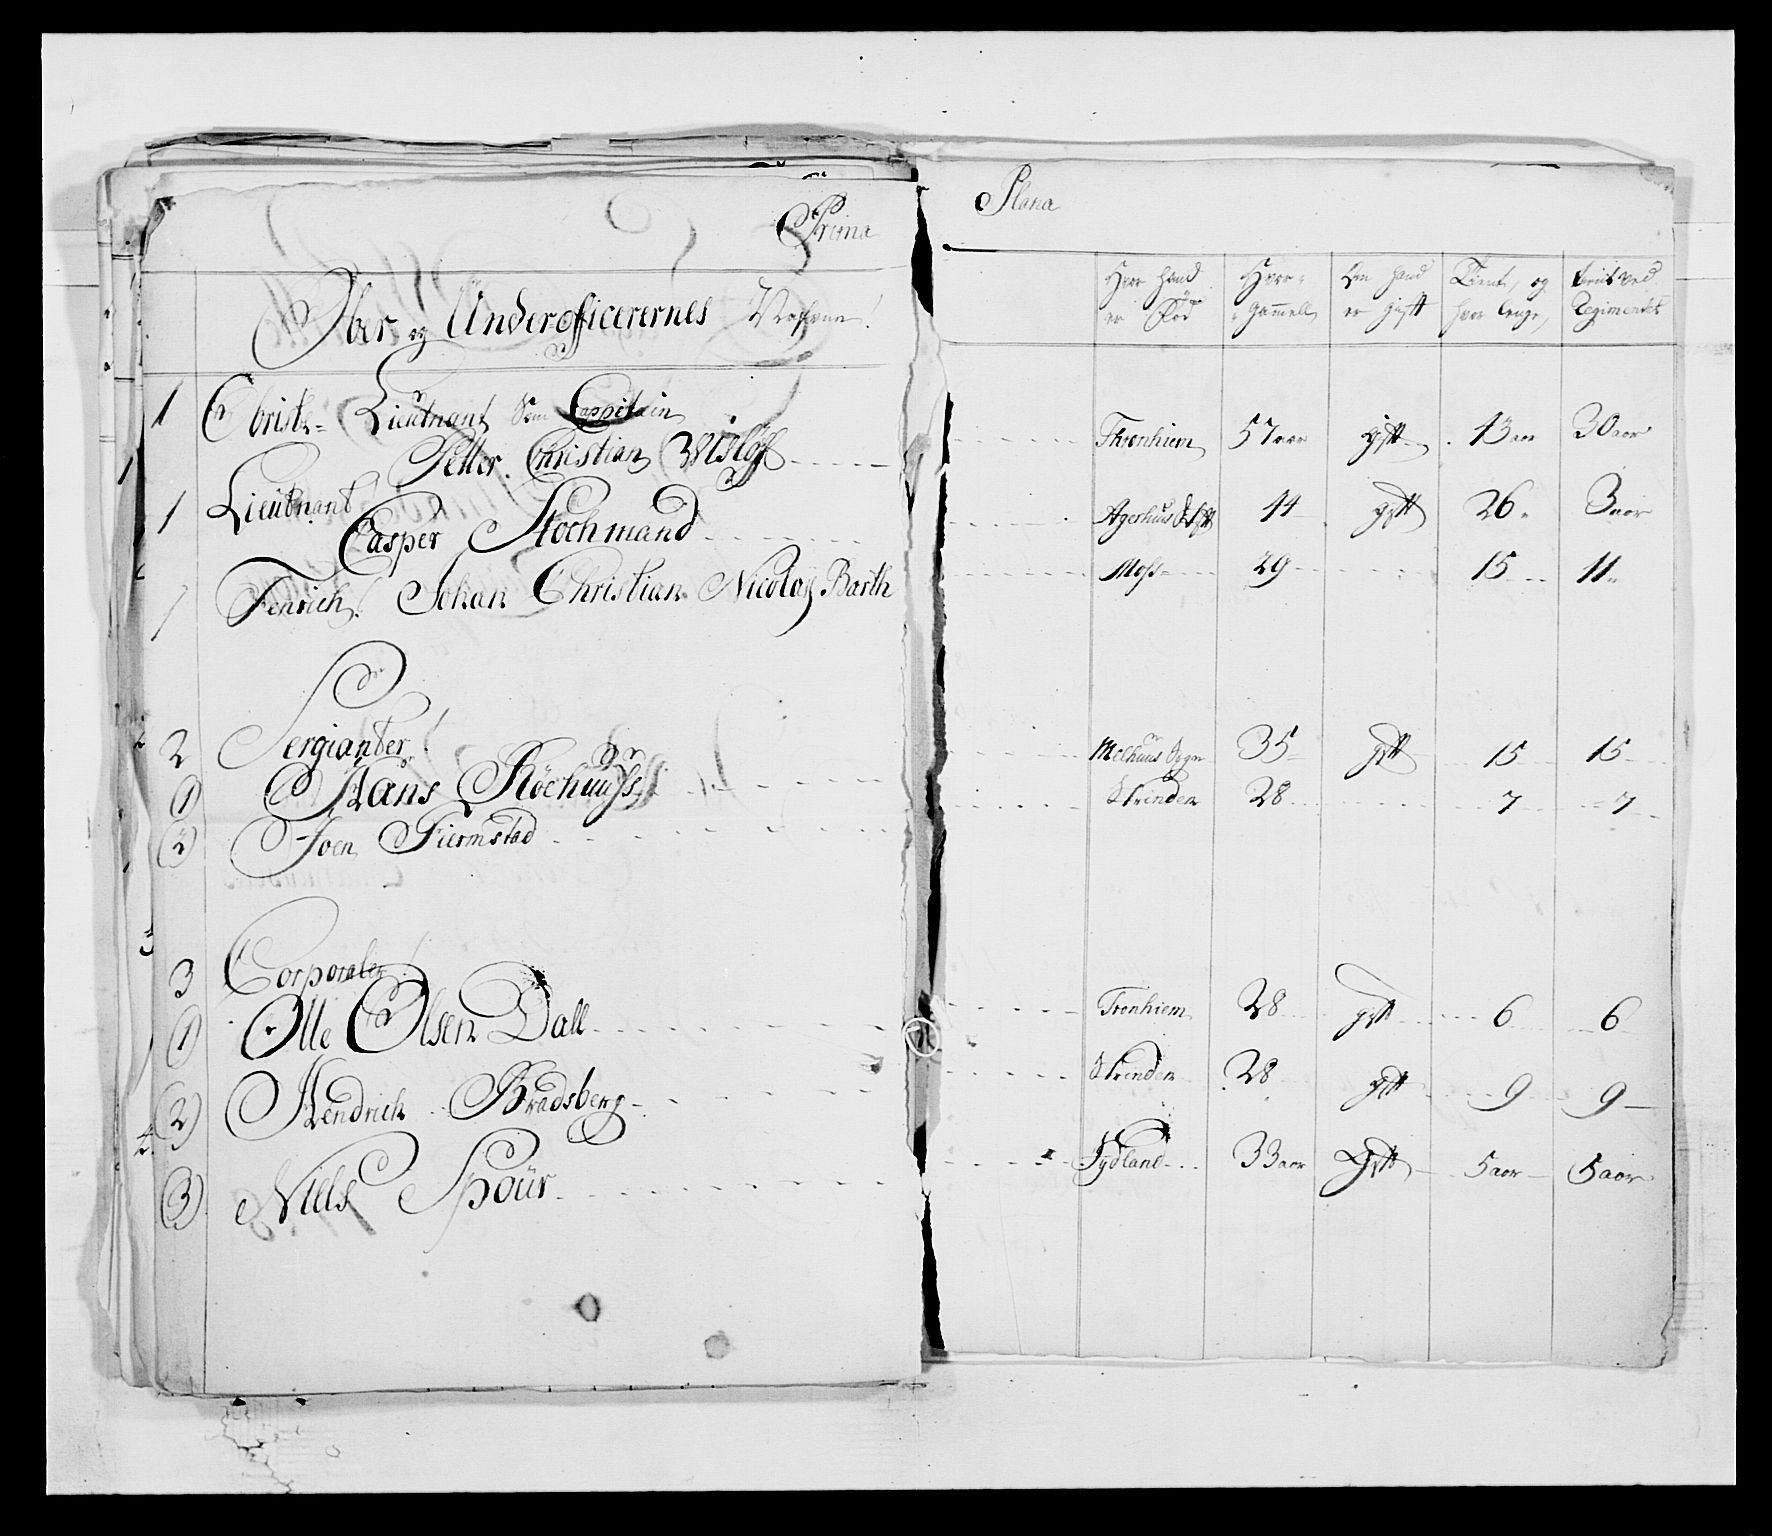 Prima Plana
Ober og Underofficerernes Nafne! Hvor hand er Fød Hvor gammell Om hand er gift Tient, og hvor lenge, været ved Regimentet
1 Obriste- Lieutnant Som Cappitain
Petter Christian Wisløf Thronhiem 57 aar gift 43 aar 30 aar
1 Lieutnant
Casper Stochmand Agerhuus Stift 44 gift 26 3 aar
1 Fenrich! Johan Christian Nicolaj Barth Moss 29 15 11
2 Sergianter!
1 Hans Röchuuss Melhuus Sogn 35 gift 15 15
2 Joen Fiermstad Strinden 28 7 7
3 Corporaler!
1 Olle Olsen Dall Tronhiem 28 gift 6 6
2 Hendrich Bradsberg Strinden 28 gift 9 9
3 Nills Spour Jydland 33 aar Gift 5 aar 5 aar